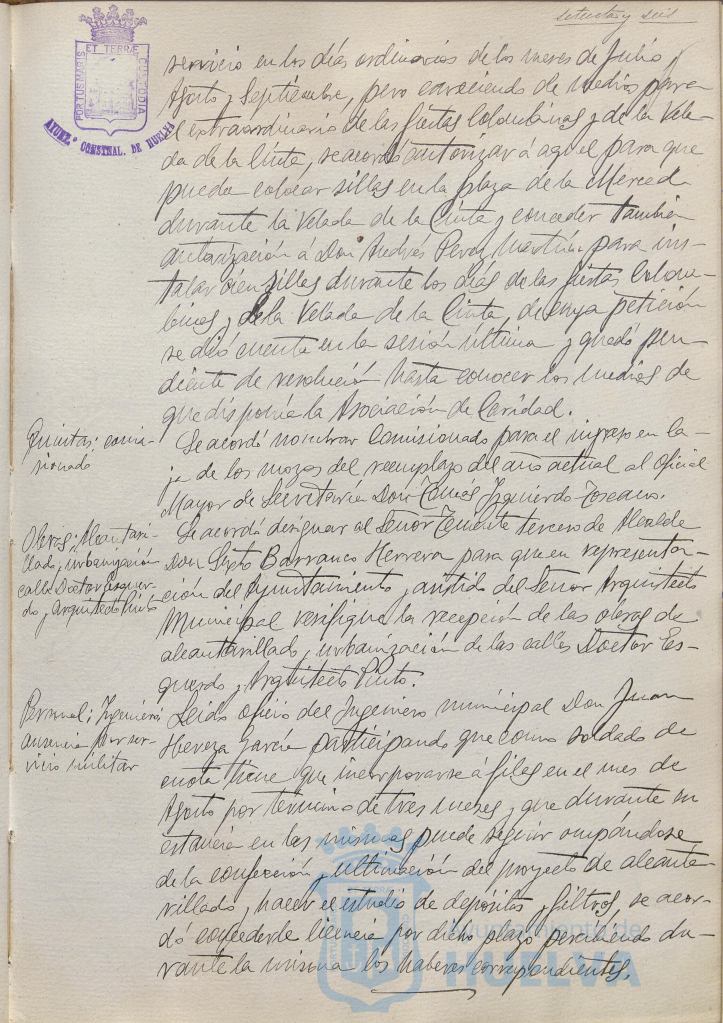 setenta y seis
PORTUS MARIS ET TERRÆ CUSTODIA
AYUNT.º CONSTNAL. DE HUELVA
servicio en los días ordinarios de los meses de Julio,
Agosto y Septiembre, pero careciendo de medios para
el extraordinario de las fiestas Colombinas y de la Vela-
da de la Cinta, se acordó autorizar á aquel para que
pueda colocar sillas en la plaza de la Merced
durante la Velada de la Cinta y conceder también
autorización á Don Andrés Perez Martín para ins-
talar cien sillas durante los días de las fiestas Colom-
binas y de la Velada de la Cinta, de cuya petición
se dió cuenta en la sesión última y quedó pen-
diente de resolución hasta conocer los medios de
que disponía la Asociación de Caridad.
Quintas; comi-
sionado
Se acordó nombrar Comisionado para el ingreso en Ca-
ja de los mozos del reemplazo del año actual al Oficial
Mayor de Secretaría Don Tomás Izquierdo Toscano.
Obras; Alcantari-
llado y urbanización
calle Doctor Esquer-
do y Arquitecto Pinto
Se acordó designar al Señor Teniente tercero de Alcalde
Don Sixto Barranco Herrera para que en representa-
ción del Ayuntamiento y asistido del Señor Arquitecto
Municipal verifique la recepción de las obras de
alcantarillado y urbanización de las calles Doctor Es-
querdo y Arquitecto Pinto.
Personal; Ingeniero
ausencia por ser-
vicio militar
Leido oficio del Ingeniero municipal Don Juan
Hereza García participando que como soldado de
cuota tiene que incorporarse á filas en el mes de
Agosto por término de tres meses y que durante su
estancia en las mismas puede seguir ocupándose
de la confección y ultimación del proyecto de alcanta-
rillado y hacer el estudio de depósitos y filtros, se acor-
dó concederle licencia por dicho plazo percibiendo du-
rante la misma los haberes correspondientes.
Ayuntamiento de
HUELVA